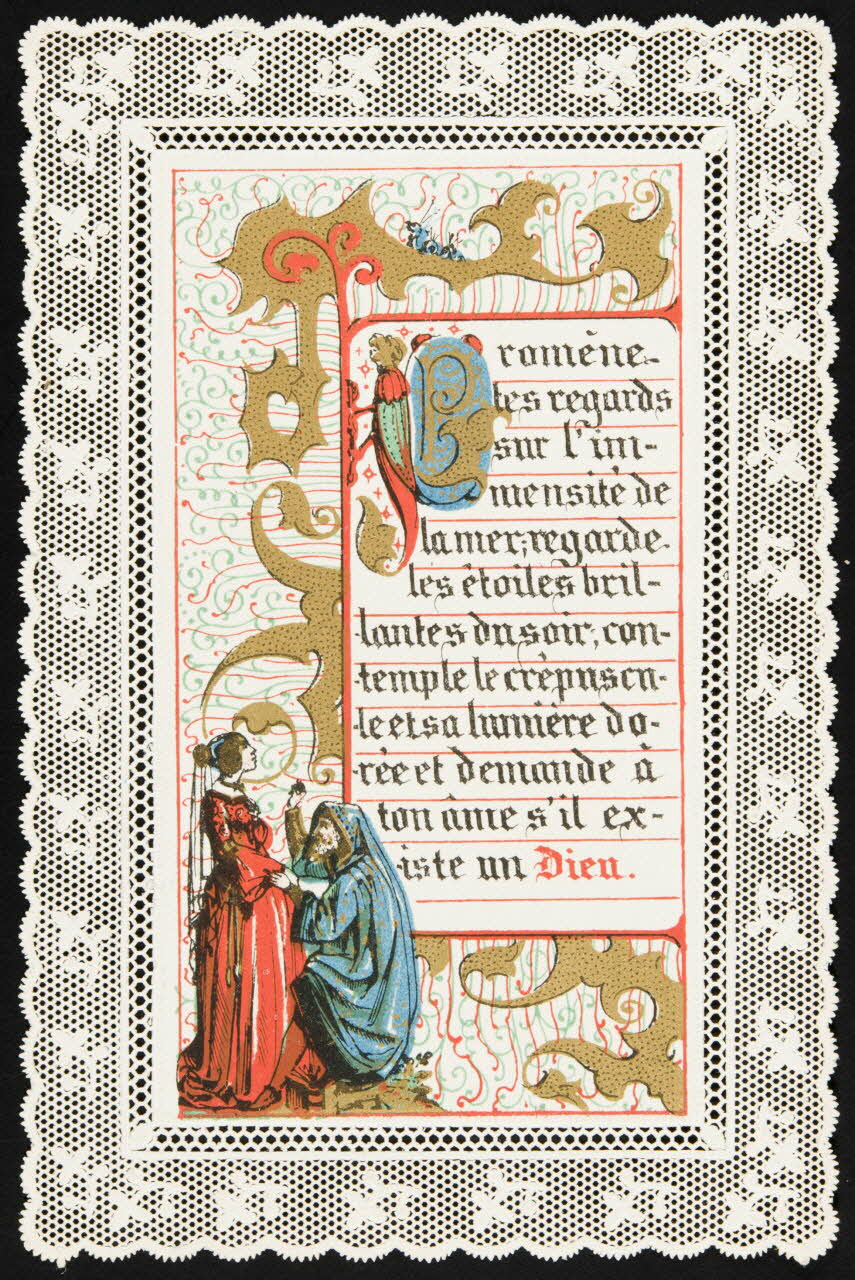 Promène
tes regards
sur l'im-
mensité de
la mer; regarde
les étoiles bril-
lantes du soir, con-
temple le crépuscu-
le et sa lumière do-
rée et demande à
ton âme s'il ex-
iste un Dieu.